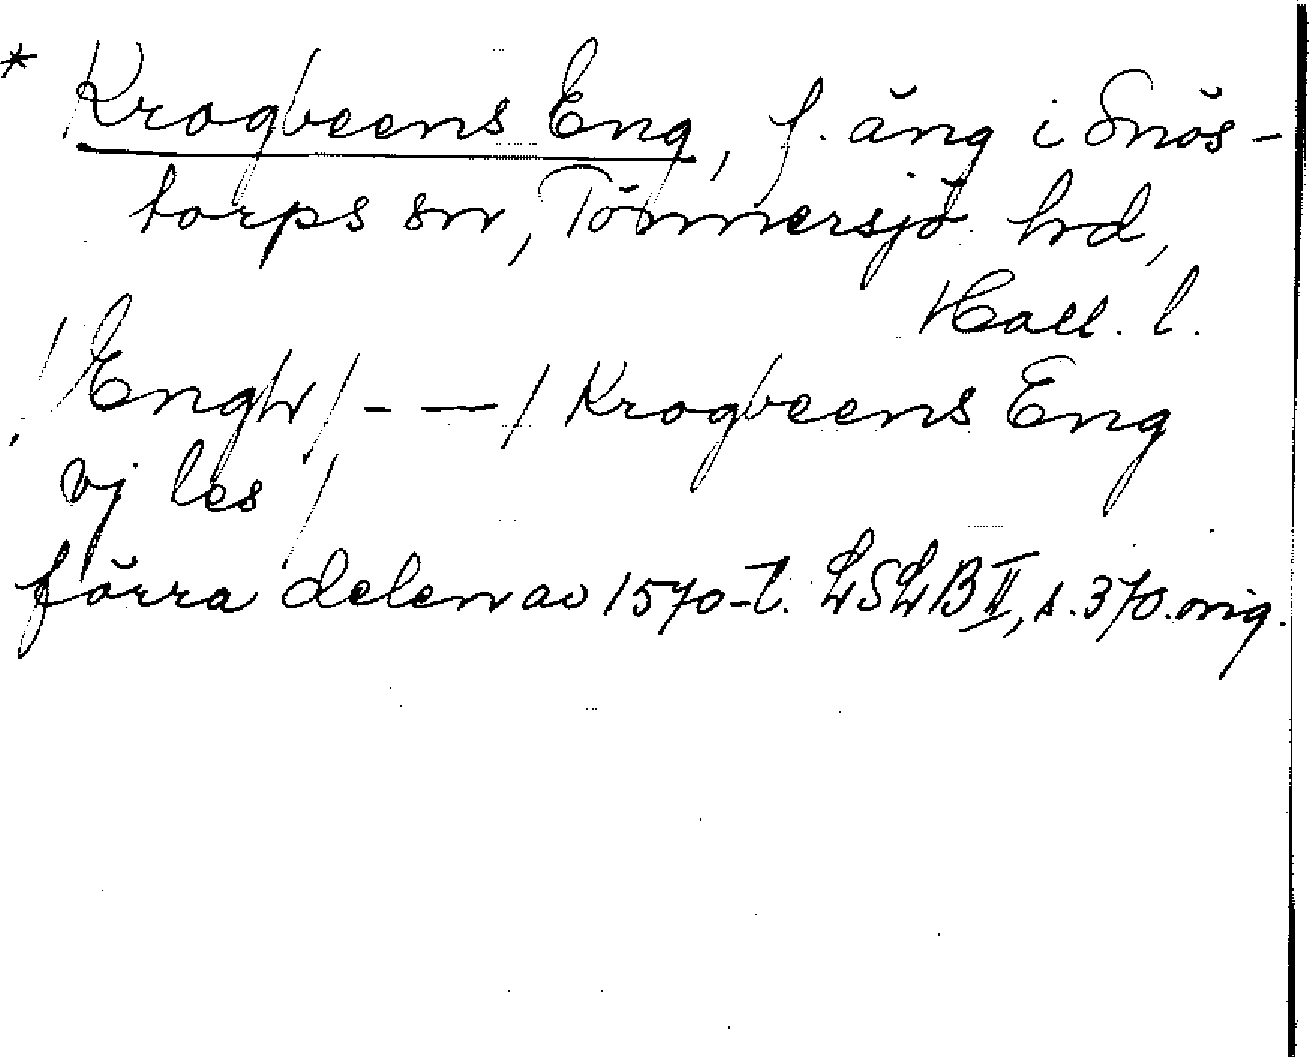 * Krogveens Eng, f. äng i Snös-
torps sn, Tönnersjö hd,
Hall. l.
/Engh/ - — / Krogveens Eng
vj les /
förra delen av 1570-t. LSLB II, s. 370. orig.